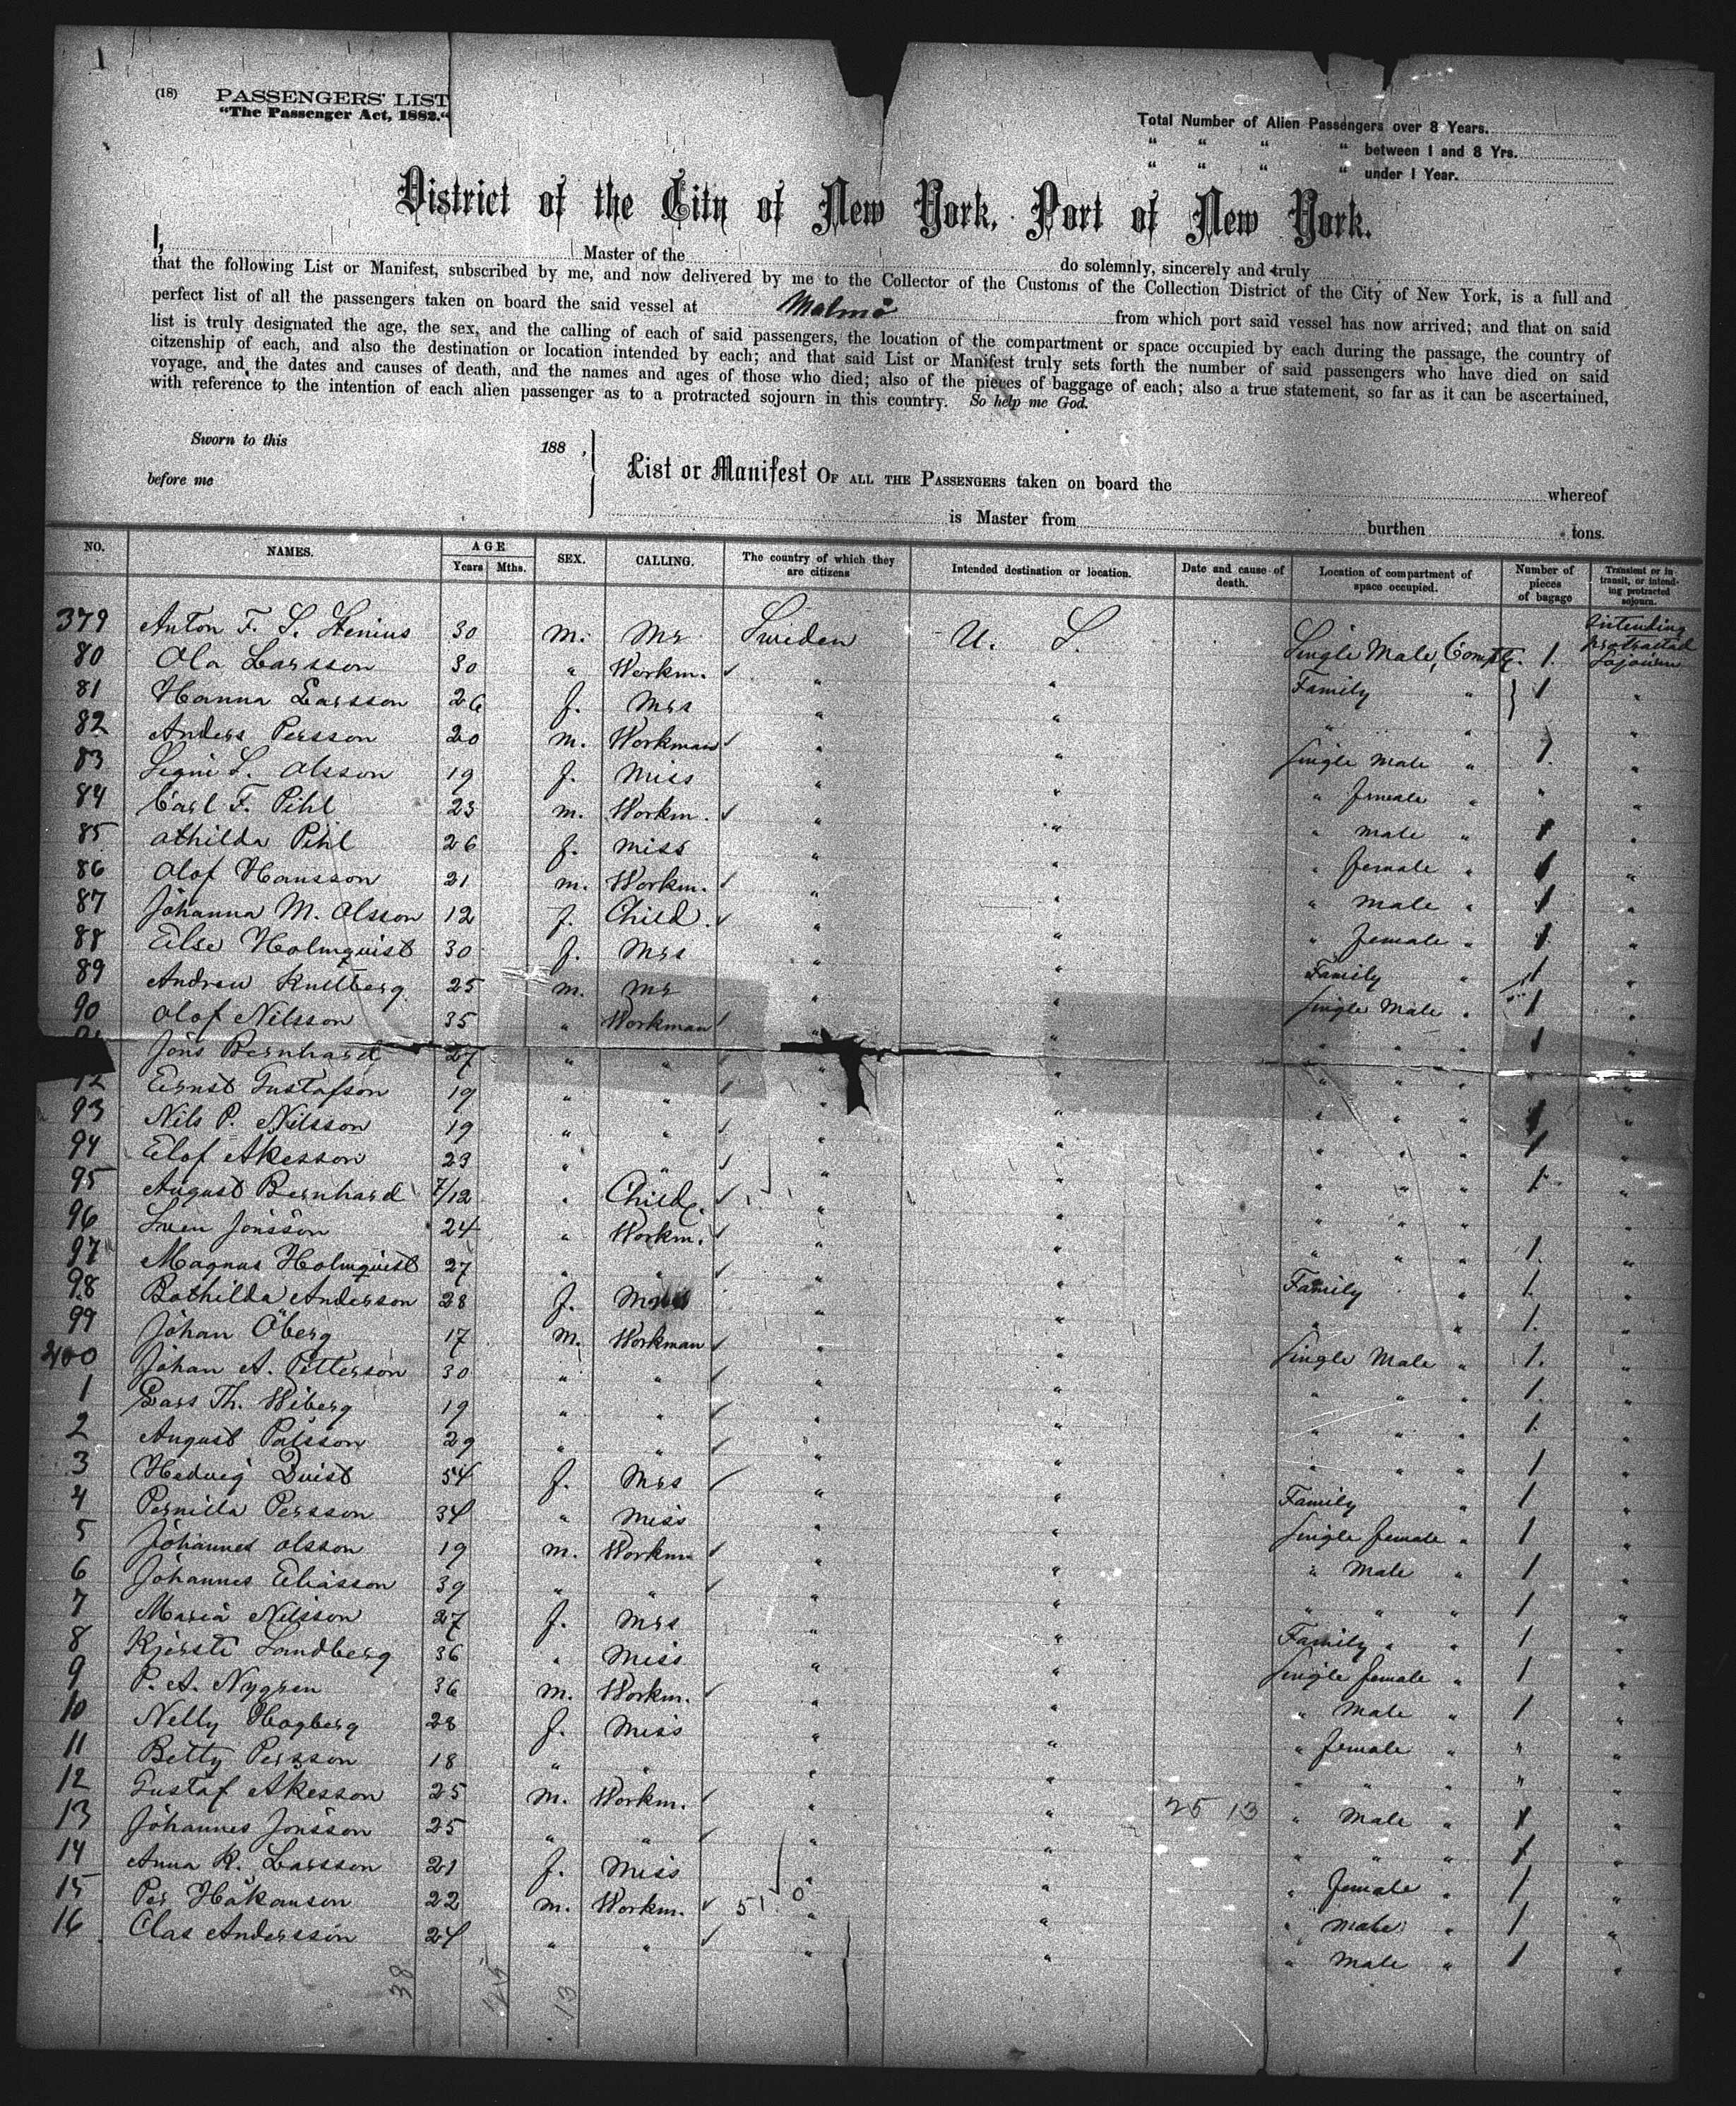 1
(18) PASSENGERS' LIST
"The Passenger Act, 1882."
Total Number of Alien Passengers over 8 Years.
" " " " between 1 and 8 Yrs.
" " " " under 1 Year.
District of the City of New York, Port of New York.
I, Master of the do solemnly, sincerely and truly
that the following List or Manifest, subscribed by me, and now delivered by me to the Collector of the Customs of the Collection District of the City of New York, is a full and
perfect list of all the passengers taken on board the said vessel at Malmö from which port said vessel has now arrived; and that on said
list is truly designated the age, the sex, and the calling of each of said passengers, the location of the compartment or space occupied by each during the passage, the country of
citzenship of each, and also the destination or location intended by each; and that said List or Manifest truly sets forth the number of said passengers who have died on said
voyage, and the dates and causes of death, and the names and ages of those who died; also of the pieces of baggage of each; also a true statement, so far as it can be ascertained,
with reference to the intention of each alien passenger as to a protracted sojourn in this country. So help me God.
Sworn to this 188 ,
before me
List or Manifest OF ALL THE PASSENGERS taken on board the whereof
is Master from burthen tons.
NO. NAMES. AGE Years Mths. SEX. CALLING. The country of which they are citizens Intended destination or location. Date and cause of death. Location of compartment of space occupied. Number of pieces of bagage Transient or in transit, or intending protracted sojourn.
379 Anton F. S. Stenius 30 m. Mr Sweden U. S. Single Male, Compt. 1. Intending protracted Sojourn
80 Ola Larsson 30 " Workm. " " Family " 1 "
81 Hanna Larsson 26 f. Mrs " " " " "
82 Anders Persson 20 m. Workman " " Single Male " 1. "
83 Signe S. Olsson 19 f. Miss " " " female " " "
84 Carl F. Pihl 23 m. Workm. " " " male " 1 "
85 Athilda Pihl 26 f. Miss " " " female " 1 "
86 Olof Hansson 21 m. Workm. " " " male " 1 "
87 Johanna M. Olsson 12 f. Child. " " " female " 1 "
88 Else Holmquist 30 f. Mrs " " Family " 1 "
89 Andrew Kullberg 25 m. Mr " " Single Male " 1 "
90 Olof Nilsson 35 " Workman " " " " " 1 "
Jöns Bernhard 27 " " " " " " " "
92 Ernst Gustafson 19 " " " " " " " 1 "
93 Nils P. Nilsson 19 " " " " " " " 1 "
94 Elof Akesson 23 " " " " " " " 1 "
95 August Bernhard 7/12 " Child. " " " " " "
96 Sven Jönsson 24 " Workm. " " " " " 1. "
97 Magnus Holmquist 27 " " " " Family " 1. "
98 Bothilda Anderson 28 f. " " " " 1. "
99 Johan Öberg 17 m. Workman " " Single Male " 1. "
400 Johan A. Petterson 30 " " " " " " " 1. "
1 Lars Th. Wiberg 19 " " " " " " " 1. "
2 August Pålsson 29 " " " " " " " 1 "
3 Hedvig Quist 54 f. Mrs " " Family " 1 "
4 Pernilla Persson 34 " Miss " " Single female " 1 "
5 Johannes Olsson 19 m. Workm. " " " Male " 1 "
6 Johannes Eliasson 39 " " " " " " " 1 "
7 Maria Nilsson 27 f. Mrs " " Family " " 1 "
8 Kjersti Sandberg 36 " Miss " " Single female " 1 "
9 P. A. Nygren 36 m. Workm. " " " Male " 1 "
10 Nelly Hogberg 28 f. Miss " " " female " " "
11 Betty Persson 18 " " " " " " " " "
12 Gustaf Akesson 25 m. Workm. " " 25 13 " Male " 1 "
13 Johannes Jönsson 25 " " " " " " " 1 "
14 Anna K. Larsson 21 f. Miss " " " female " 1 "
15 Per Håkanson 22 m. Workm. 51 0 " " " male " 1 "
16 Clas Andersson 24 " " " " " Male " 1 "
38 25 13